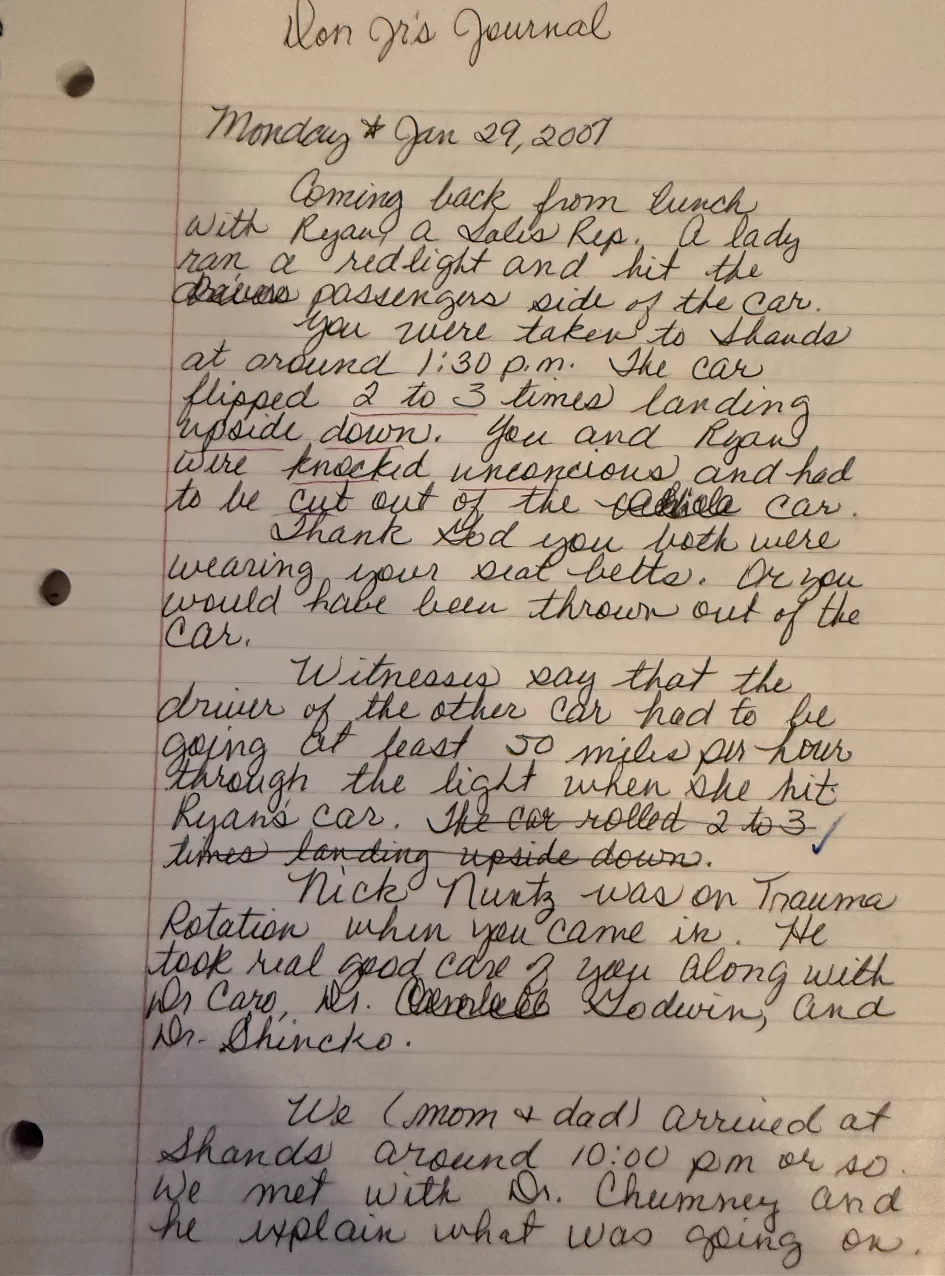 Don Jr's Journal
Monday * Jan 29, 2007
Coming back from lunch
with Ryan, a Sales Rep. A lady
ran a redlight and hit the
passengers side of the car.
You were taken to Shands
at around 1:30 p.m. The car
flipped 2 to 3 times landing
upside down. You and Ryan
were knocked unconcious and had
to be cut out of the car.
Thank God you both were
wearing your seat belts. Or you
would have been thrown out of the
car.
Witnesses say that the
driver of the other car had to be
going at least 50 miles per hour
through the light when she hit
Ryan's car. The car rolled 2 to 3
times landing upside down.
Nick Nuntz was on Trauma
Rotation when you came in. He
took real good care of you along with
Dr Caro, Dr. Godwin, and
Dr. Shincko.
We (mom & dad) arrived at
Shands around 10:00 pm or so.
We met with Dr. Chumney and
he explain what was going on.